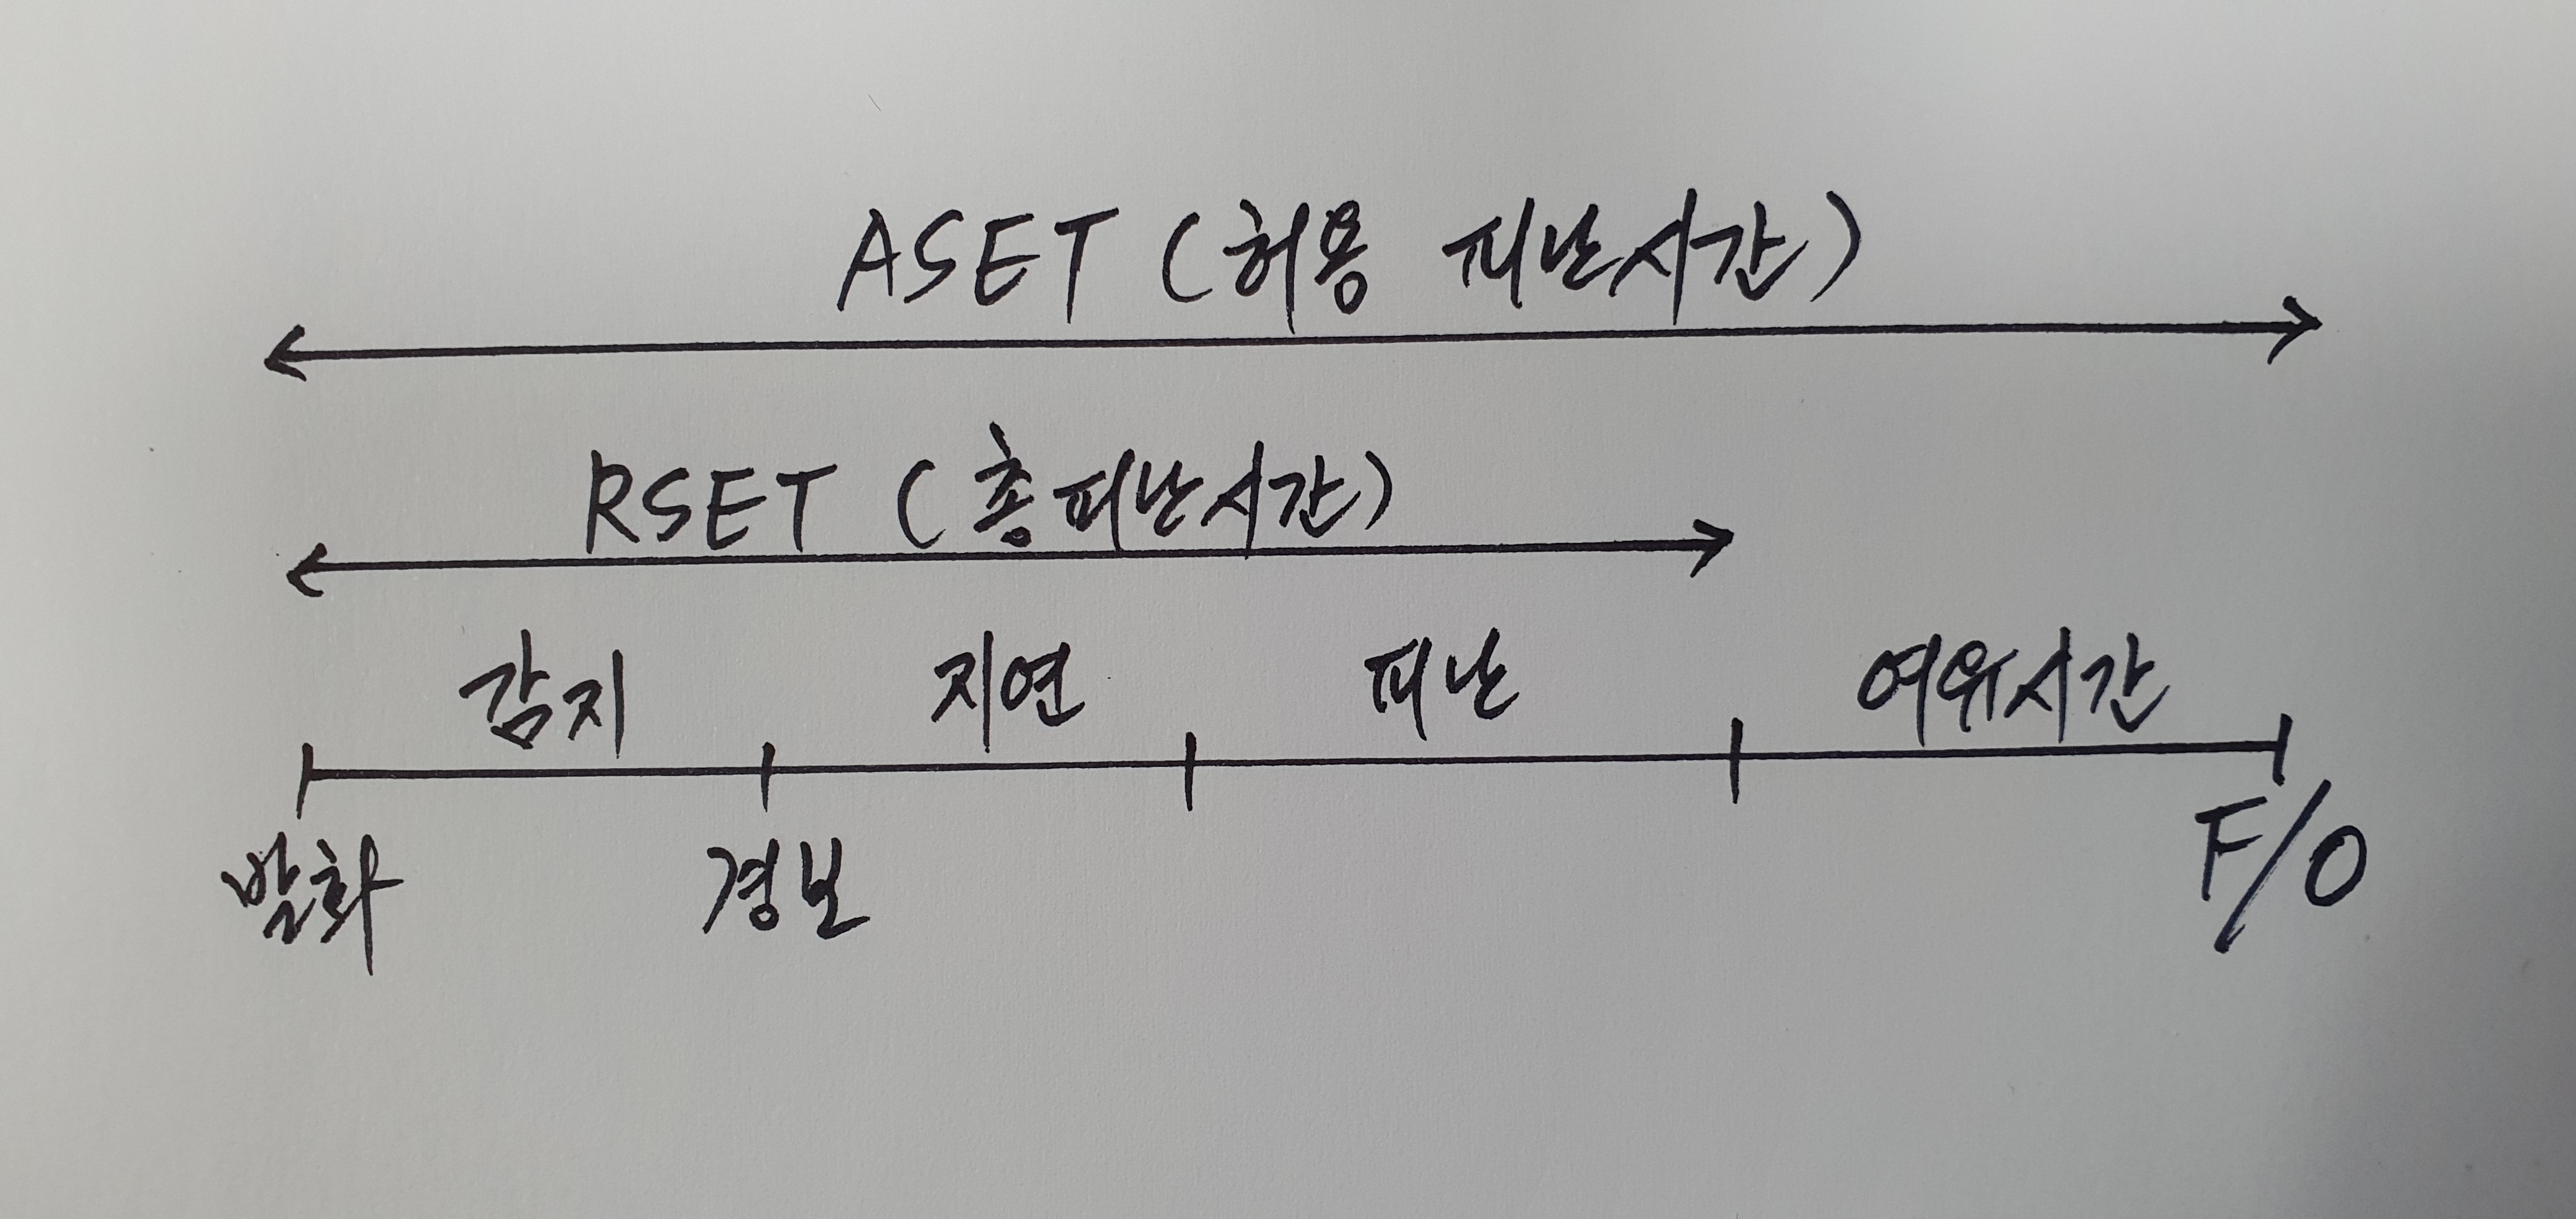 ASET (허용 피난시간)
RSET (총피난시간)
감지 지연 피난 여유시간
발화 경보 F/O